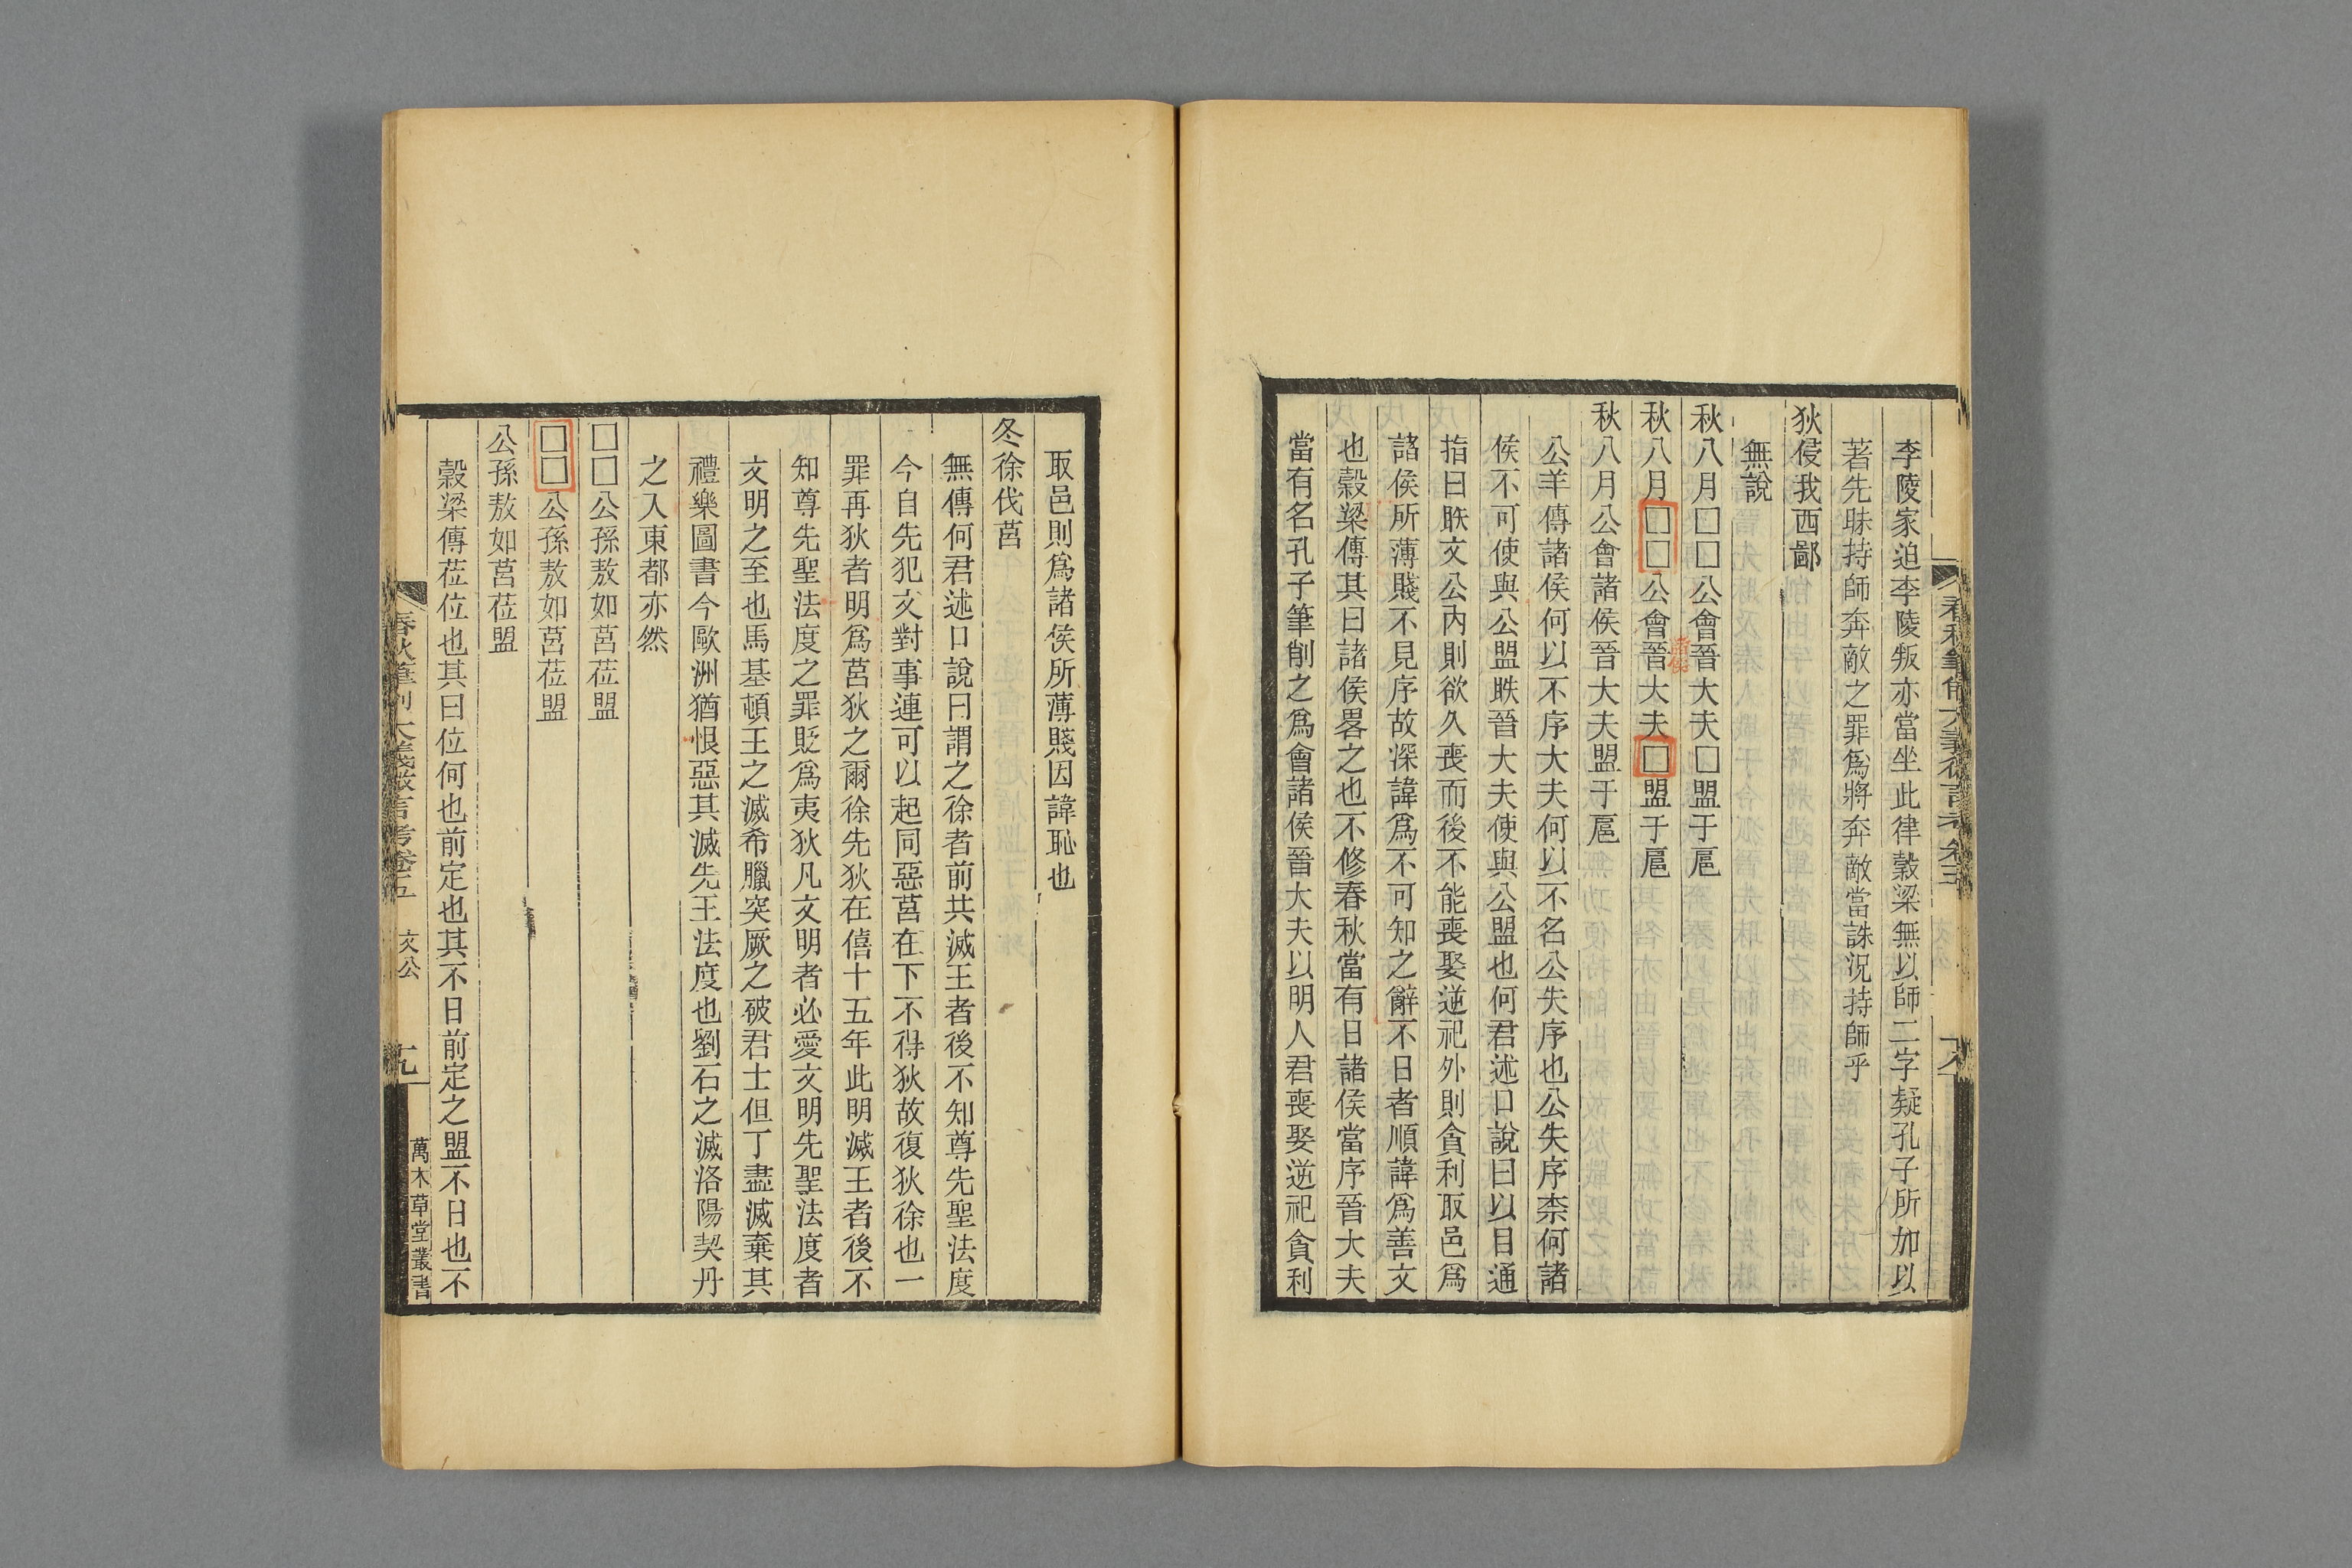 李陵家迫李陵叛亦當坐此律穀梁無以師二字疑孔子所加以
著先昧持師奔敵之罪爲將奔敵當誅況持師乎
狄侵我西鄙
無說
秋八月□□公會晉大夫□盟于扈
秋八月□□公會晉大夫□盟于扈
秋八月公會諸侯晉大夫盟于扈
公羊傳諸侯何以不序大夫何以不名公失序也公失序柰何諸
侯不可使與公盟眣晉大夫使與公盟也何君述口說曰以目通
指曰眣文公內則欲久喪而後不能喪娶逆祀外則貪利取邑爲
諸侯所薄賤不見序故深諱爲不可知之辭不日者順諱爲善文
也穀梁傳其曰諸侯畧之也不修春秋當有日諸侯當序晉大夫
當有名孔子筆削之爲會諸侯晉大夫以明人君喪娶逆祀貪利
取邑則爲諸侯所薄賤因諱恥也
冬徐伐莒
無傳何君述口說曰謂之徐者前共滅王者後不知尊先聖法度
今自先犯文對事連可以起同惡莒在下不得狄故復狄徐也一
罪再狄者明爲莒狄之爾徐先狄在僖十五年此明滅王者後不
知尊先聖法度之罪貶爲夷狄凡文明者必愛文明先聖法度者
文明之至也馬基頓王之滅希臘突厥之破君士但丁盡滅棄其
禮樂圖書今歐洲猶恨惡其滅先王法度也劉石之滅洛陽契丹
之入東都亦然
□□公孫敖如莒莅盟
□□公孫敖如莒莅盟
公孫敖如莒莅盟
穀梁傳莅位也其曰位何也前定也其不日前定之盟不日也不
春秋筆削大義微言考卷五 文公 十九 萬木草堂叢書